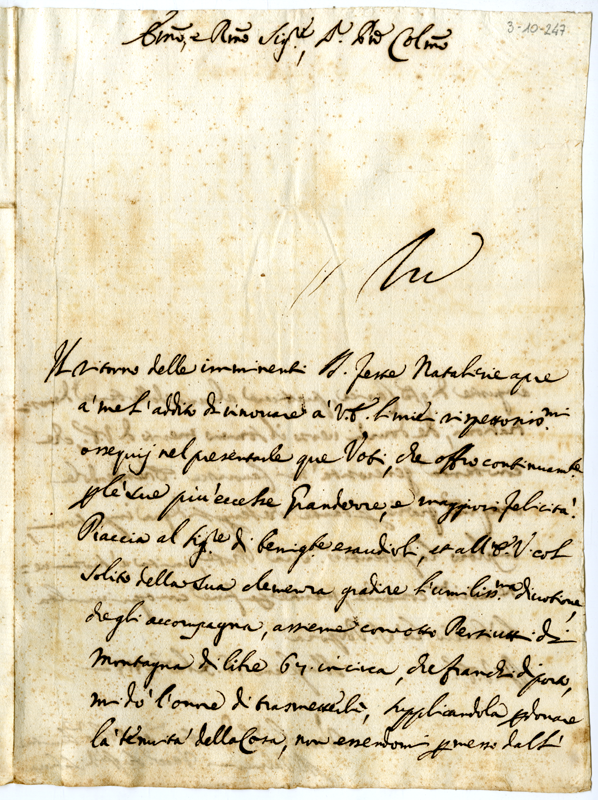 3-10-247
Em̃o, e Rm̃o Sig.re, S.r P̃rõ Colm̃o
Il ritorno delle imminenti S. Feste Natalizie apre
à me l'adito di rinovare à V. E. li miei rispettosiss.mi
ossequij nel presentarle que Voti, che offro continuam.te
p̱ le sue più eccelse Grandezze, e maggiori felicità.
Piaccia al Sig.re di benig.te esaudirli, et all' E. V. col
solito della sua clemenza gradire l'umiliss.ma divotione,
che gli accompagna, assieme con otto Persiutti di
Montagna di libre 67. in circa, che franchi di porto,
mi dò l'onore di trasmetterli, supplicandola p̱donare
la tenuità della Cosa, non essendomi p̱messo dall'